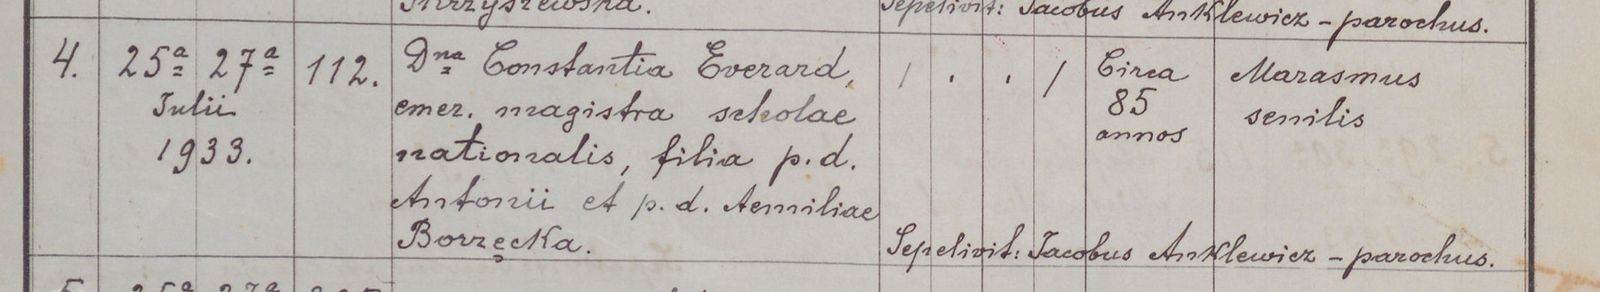 Sepelivit: Jacobus Anklewicz - parochus.
4. 25ª 27ª 112. Dna Constantia Everard, / . . / Circa Marasmus
Julii emer. magistra scholae 85 senilis
1933. nationalis, filia p.d. annos
Antonii et p.d. Aemiliae
Borzęcka. Sepelivit: Jacobus Anklewicz - parochus.